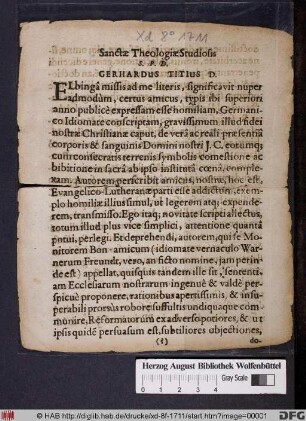 Xd 8° 1711
Sanctæ Theologiæ Studiosis
S. P. D.
GERHARDUS TITIUS D.
ELbingâ missis ad me literis, significavit nuper
admodùm, certus amicus, typis ibi superiori
anno publicè expressam esse homiliam, Germani-
co Idiomate conscriptam, gravissimum illud fidei
nostræ Christianæ caput, de verâ ac reali præsentiâ
corporis & sanguinis Domini nostri J. C. eorumq;
cum consecratis terrenis symbolis comestione ac
bibitione in sacrâ ab ipso institutâ cœnâ, comple-
xam. Autorem perscribit amicus, nostræ, hoc est,
Evangelico-Lutheranæ parti esse addictum, exem-
plo homiliæ illius simul, ut legerem atq; expende-
rem, transmisso. Ego itaq; novitate scripti allectus,
totum illud plus vice simplici, attentione quantâ
potui, perlegi. Et deprehendi, autorem, qui se Mo-
nitorem Bon-amicum (idiomate vernaculo War-
nerum Freundt, vero, an ficto nomine, jam perin-
de est) appellat, quisquis tandem ille sit, sententi-
am Ecclesiarum nostrarum ingenuè & valdè per-
spicuè proponere, rationibus apertissimis, & insu-
perabili prorsus robore suffultis undiquaque com-
munire, Reformatorum ex adverso poriores, & ut
ipsis quidem persuasum est, subtiliores objectiones,
do-
Herzog August Bibliothek Wolfenbüttel
Gray Scale
© HAB http://diglib.hab.de/drucke/xd-8f-1711/start.htm?image=00001
DFG